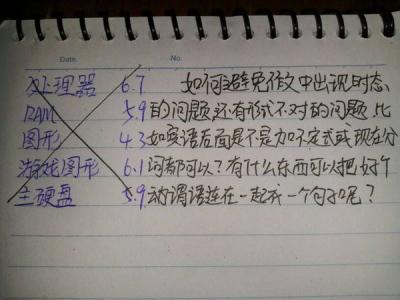 Date: No:
处理器 6.7 如何避免作文中出现时态
RAM 5.9 的问题还有形式不对的问题.比
图形 4.3 如宾语后面是不是加不定式或现在分
游戏图形 6.1 词都可以?有什么东西可以把好个
主硬盘 5.9 动谓语连在一起成一个句子呢?